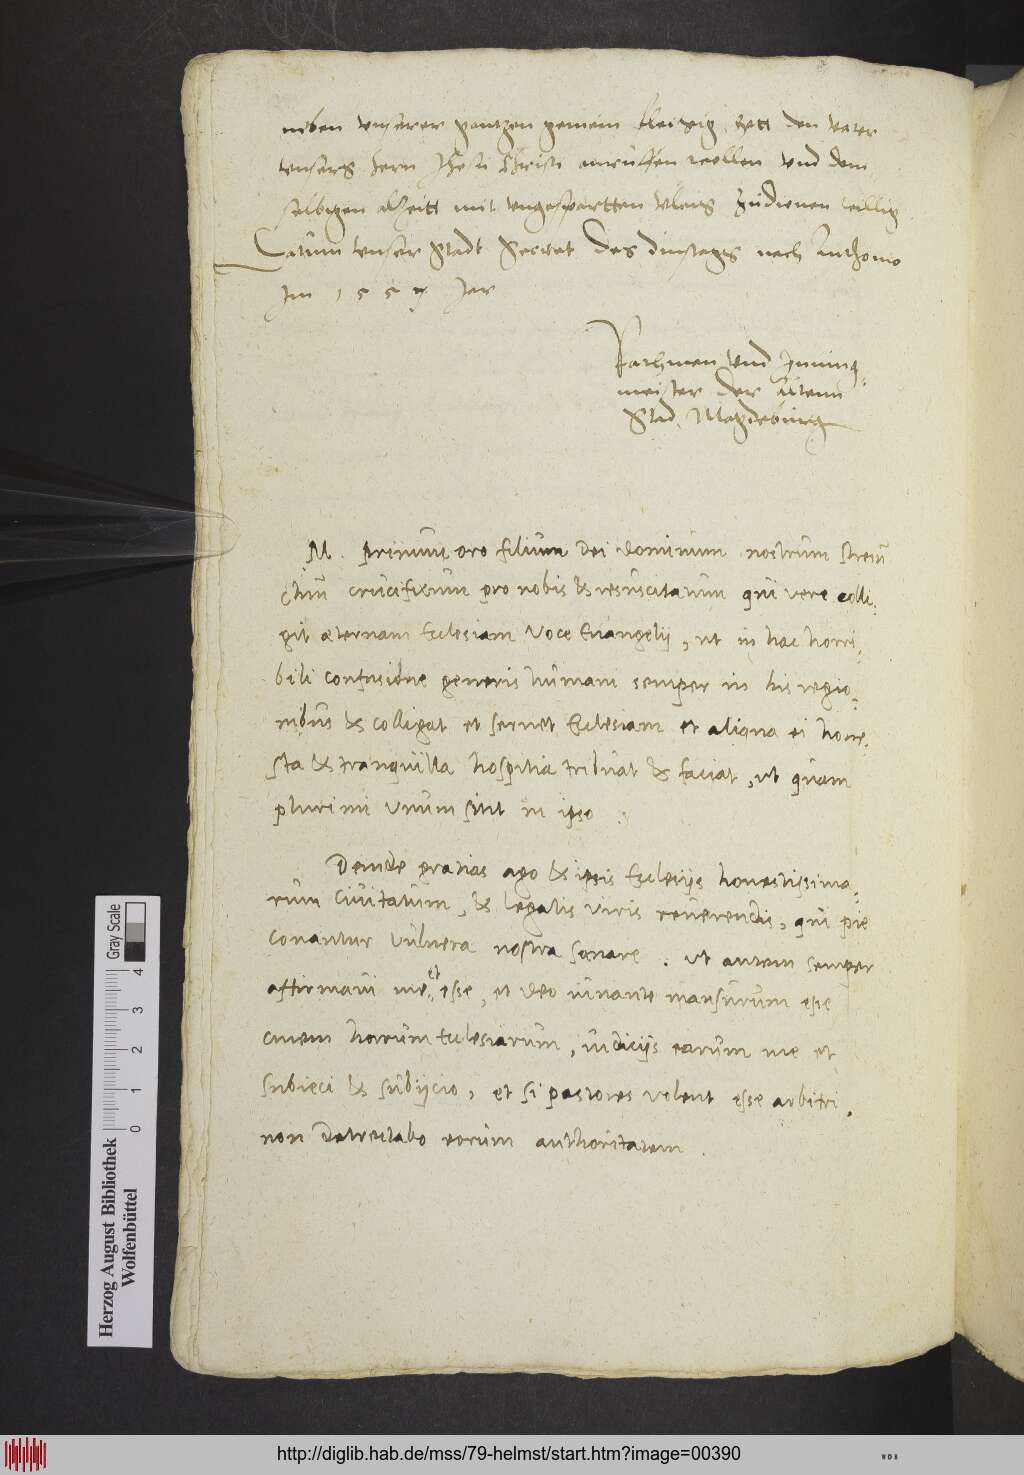 neben unserer gantzen gemein vleissig gott den vater
unsers hern Jhesu Christi anruffen wollen und dem
selbigen alzeitt mit ungespartten vleis zudienen willig
Datum unser Stadt Secret des dinstages nach Anthonio
Im 1557 Jar
Rathmanen und Inning-
meister der Altenn
Stad Magdeburg
M. Primum oro filium Dei dominum nostrum Jhesum
Chrm crucifixum pro nobis & resuscitatum qui vere colli-
git æternam Ecclesiam voce Euangelij, ut in hac horri-
bili confusione generis humani semper in his regio-
nibus & colligat et seruet Ecclesiam et aliqua ei hone-
sta & tranquilla hospitia tribuat & faciat, ut quam
plurimi unum sint in ipso.
Deinde gratias ago & ipsis Ecclesijs honestissima-
rum Ciuitatum, & legatis viris reuerendis, qui pie
conantur vulnera nostra sanare. Ut autem semper
affirmaui me et esse, et deo iuuante mansurum esse
ciuem harum Ecclesiarum, iudicijs earum me et
subieci & subijcio, et si pastores volent esse arbitri,
non detrectabo eorum authoritatem.
Herzog August Bibliothek
Wolfenbüttel
Gray Scale
0 1 2 3 4
http://diglib.hab.de/mss/79-helmst/start.htm?image=00390
WDB